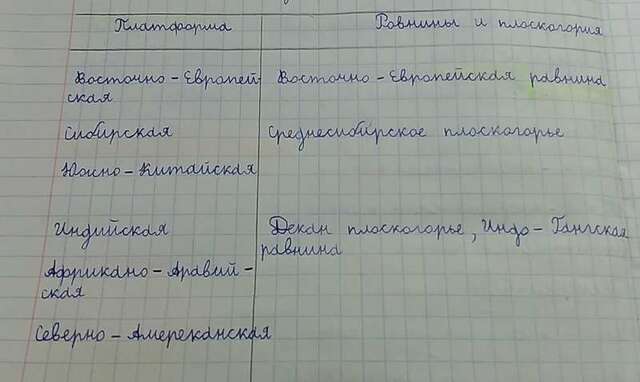 Платформа Ровнины и плоскогория
Восточно - Европей- Восточно - Европейская равнина
ская
Сибирская Среднесибирское плоскогорье
Южно - Китайская
Индийская Декан плоскогорье, Индо - Гангская
равнина
Африкано - Аравий -
ская
Северно - Амереканская